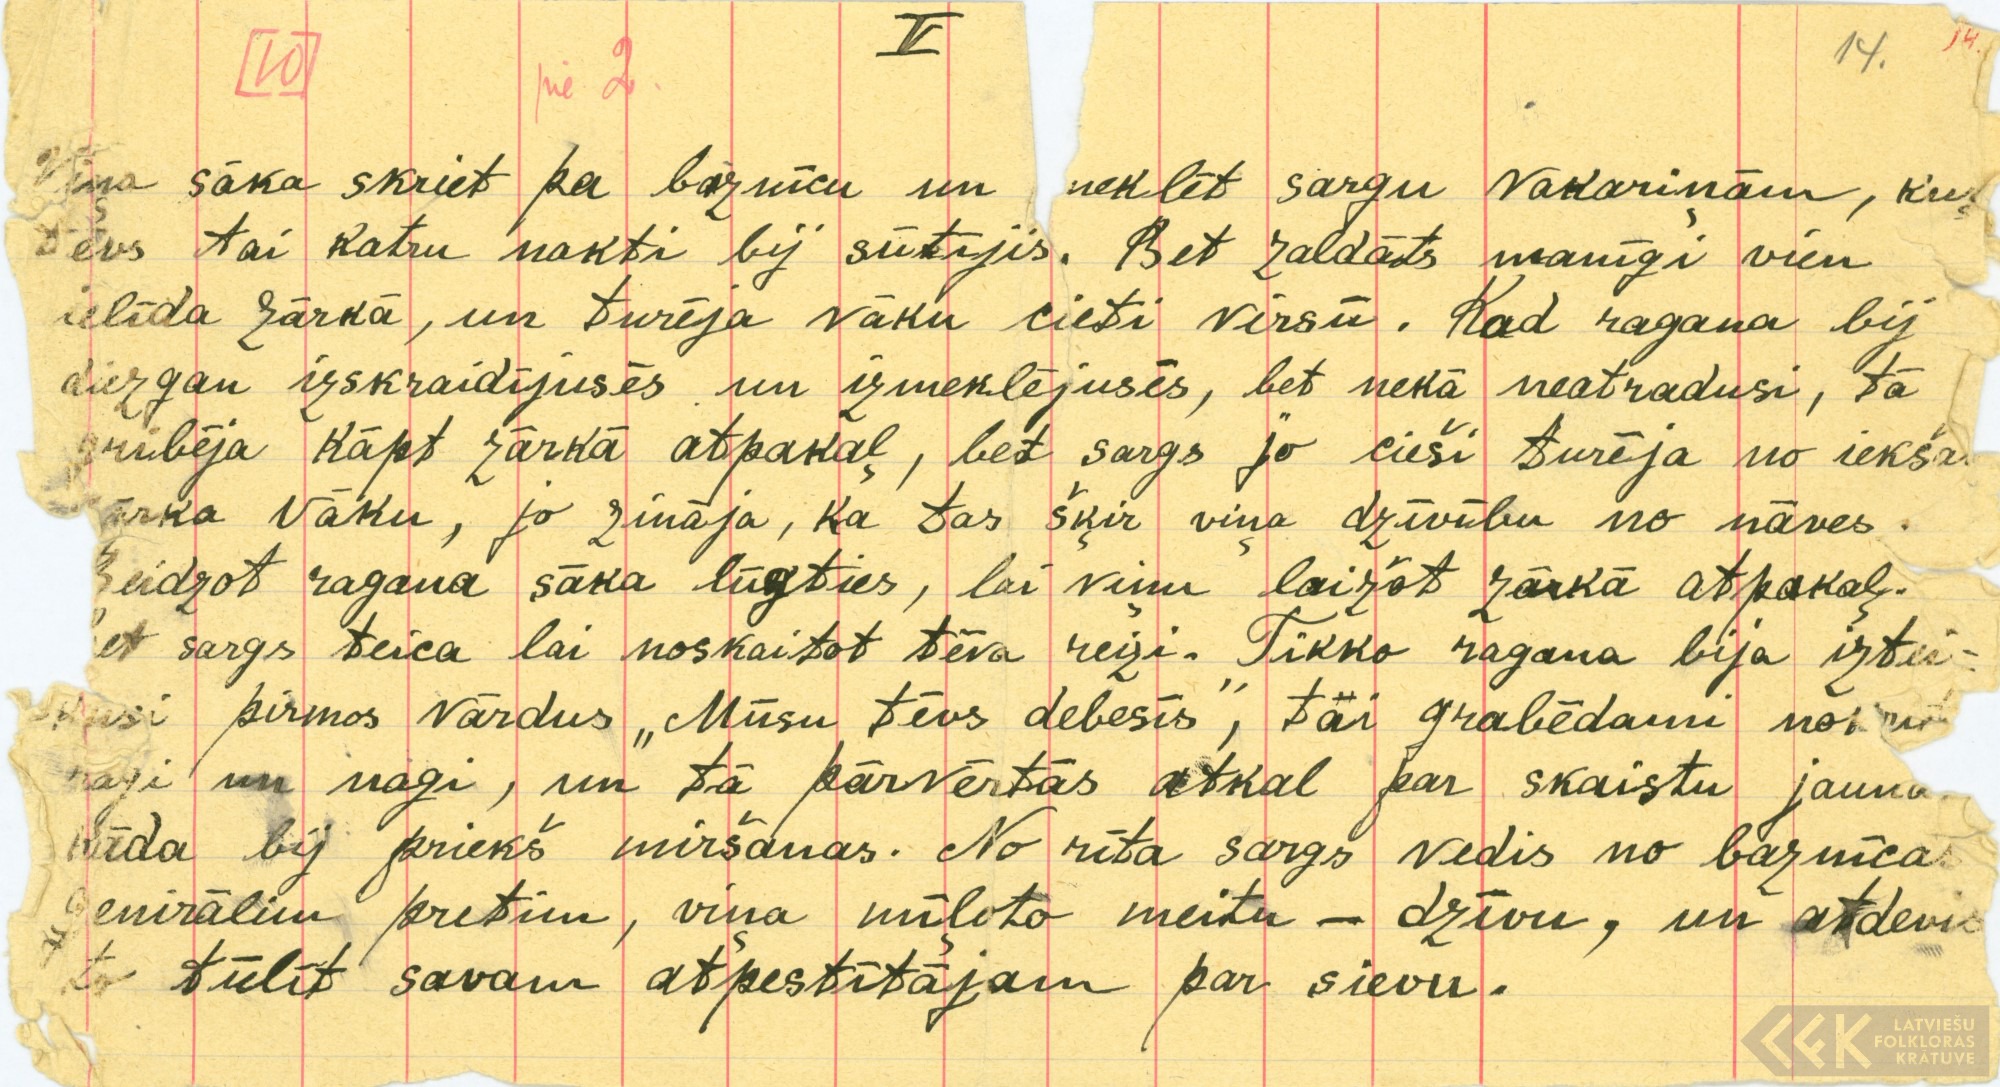 [10] pie 2. V 14. 14.
Viņa sāka skriet pa bāznīcu un meklēt sargu vakariņām, kuŗ
tēvs tai katru nakti bij sūtījis. Bet zaldāts manīgi vien
ielīda zārkā, un turēja vāku cieti virsū. Kad ragana bij
diezgan izskraidījusēs un izmeklējusēs, bet nekā neatradusi, tā
gribēja kāpt zārkā atpakaļ, bet sargs jo cieši turēja no iekša
zārka vāku, jo zināja, ka tas šķir viņa dzīvību no nāves.
Beidzot ragana sāka lūgties, lai viņu laižot zārkā atpakaļ.
Bet sargs teica lai noskaitot tēva reizi. Tikko ragana bija iztei-
kusi pirmos vārdus „Mūsu tēvs debesīs", tāi grabēdami
ragi un nagi, un tā pārvērtās atkal par skaistu jaunu
kāda bij priekš miršanas. No rīta sargs vedis no baznīcas
ģenirālim pretim, viņa mīļoto meitu – dzīvu, un atdevis
to tūlīt savam atpestītājam par sievu.
LATVIEŠU
FOLKLORAS
KRĀTUVE